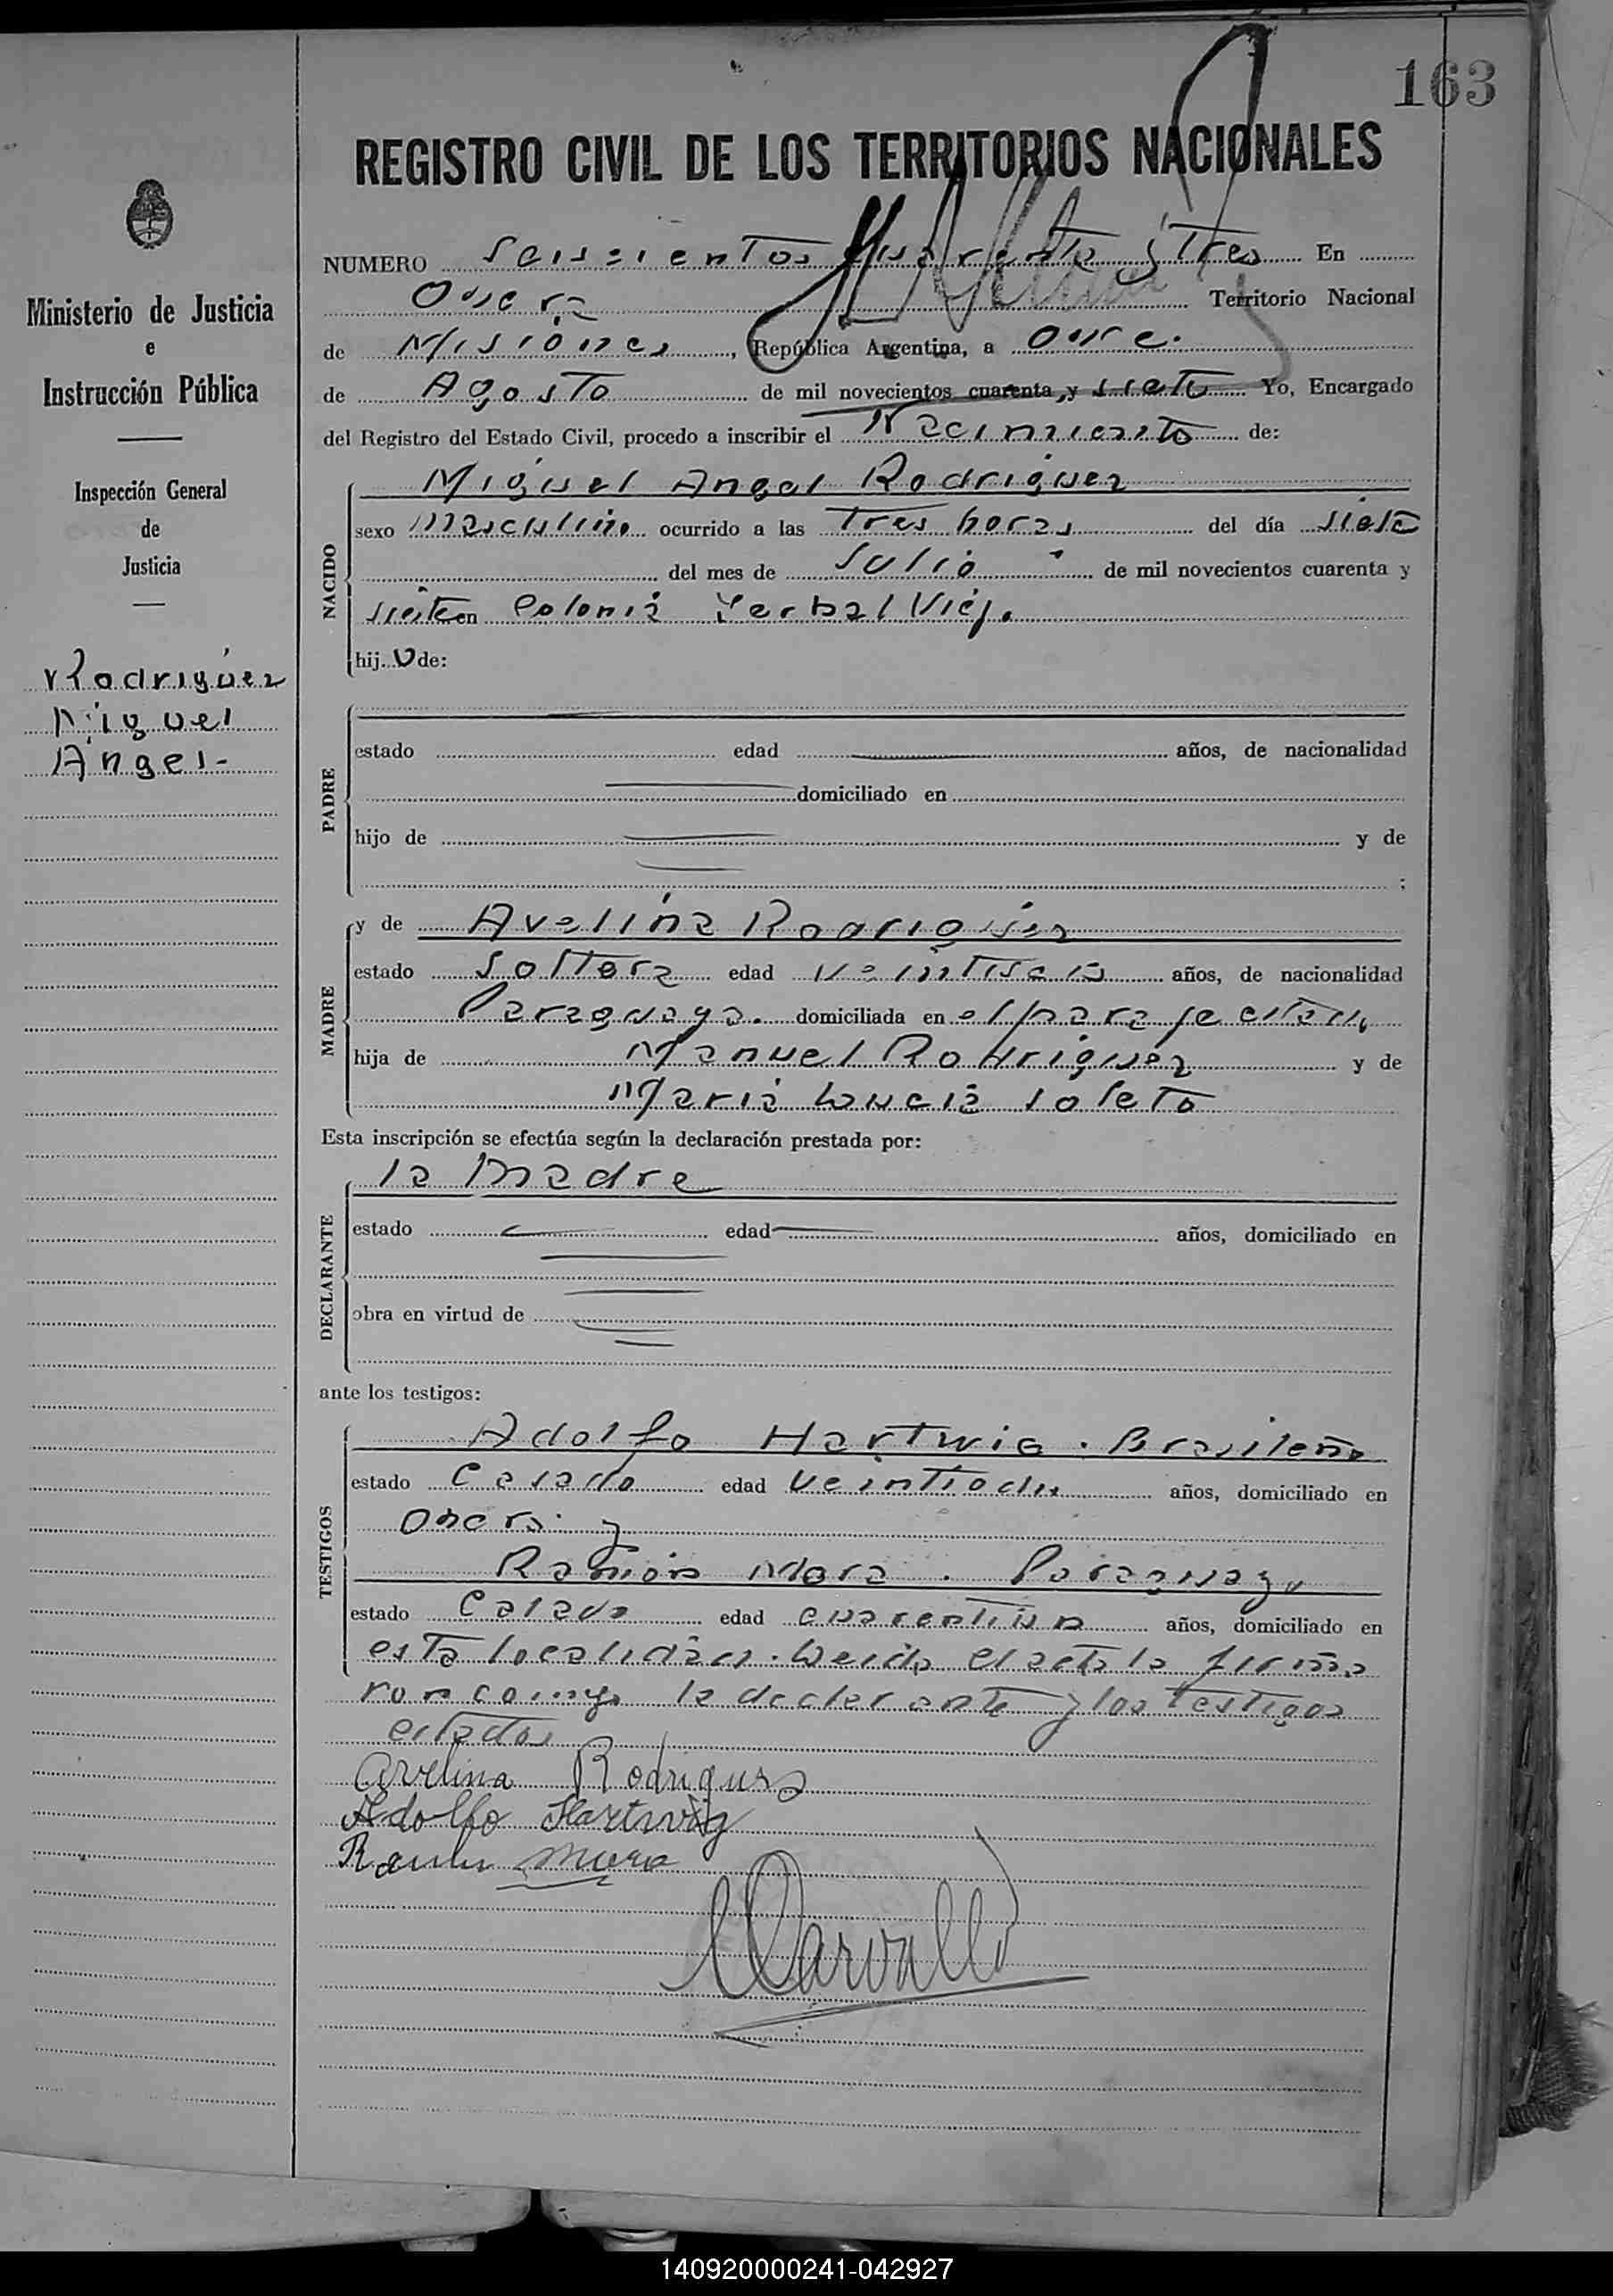 163
REGISTRO CIVIL DE LOS TERRITORIOS NACIONALES
Ministerio de Justicia
e
Instrucción Pública
Inspección General
de
Justicia
Rodriguez
Miguel
Angel-
NUMERO Seiscientos cuarenta y Tres En
Oberá Territorio Nacional
de Misiones, República Argentina, a once.
de Agosto de mil novecientos cuarenta y siete Yo, Encargado
del Registro del Estado Civil, procedo a inscribir el Nacimiento de:
NACIDO
Miguel Angel Rodriguez
sexo masculino ocurrido a las Tres horas del día siete
del mes de Julio de mil novecientos cuarenta y
siete en Colonia Yerbal Viejo
hijo de:
PADRE
estado edad años, de nacionalidad
domiciliado en
hijo de y de
;
MADRE
y de Avelina Rodriguez
estado soltera edad veintiseis años, de nacionalidad
Paraguaya. domiciliada en el paraje citado
hija de Manuel Rodriguez y de
Maria Lucia Soleto
Esta inscripción se efectúa según la declaración prestada por:
DECLARANTE
la Madre
estado edad años, domiciliado en
obra en virtud de
ante los testigos:
TESTIGOS
Adolfo Hartwig. Brasileño
estado Casado edad Veintiocho años, domiciliado en
Oberá y
Ramón Mora. Paraguayo
estado Casado edad cuarentiun años, domiciliado en
esta localidad. Leida el acta la firma
ron conmigo la declarante y los testigos
citados
Avelina Rodriguez
Adolfo Hartwig
Ramon Mora
Carvallo
140920000241-042927